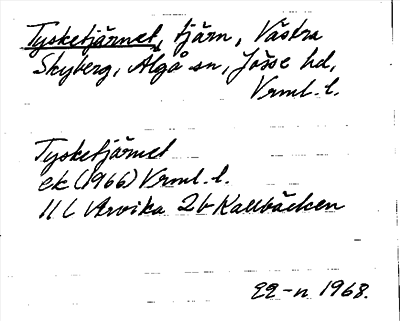 Tysketjärnet, tjärn, Västra
Skyberg, Älgå sn, Jösse hd,
Vrml. l.
Tysketjärnet
ek (1966) Vrml. l.
11 C Arvika 2 b Kallbäcken
1968.